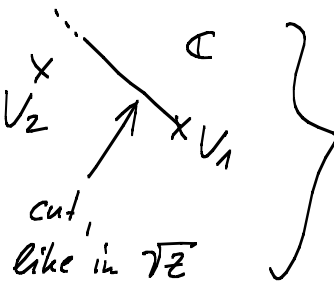 ℂ
V₂
V₁
cut,
like in √z